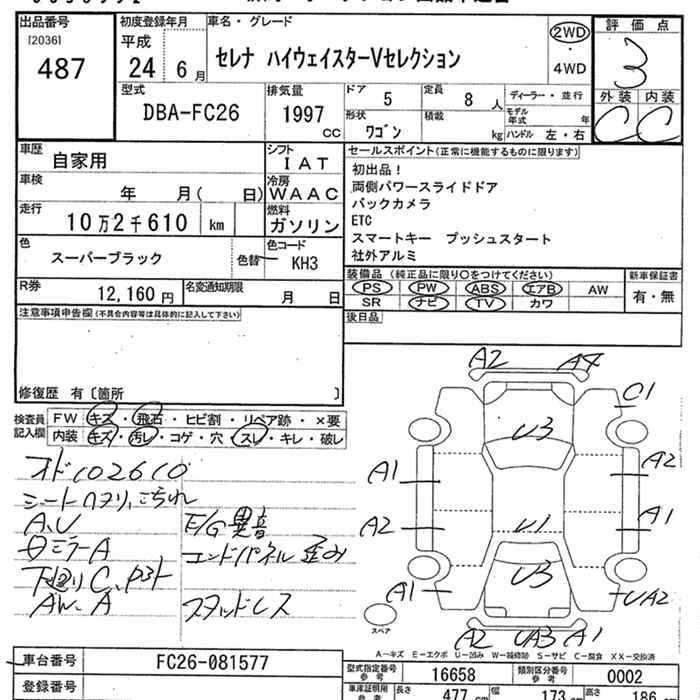 出品番号
[2036]
487
初度登録年月
平成
24 6月
車名・グレード
セレナ ハイウェイスターVセレクション
2WD
・
4WD
評価点
3
外装 内装
C C
型式
DBA-FC26
排気量
1997
CC
ドア
5
定員
8 人
ディーラー・並行
形状
ワゴン
積載
kg
モデル年式 年
ハンドル 左・右
車歴
自家用
シフト
IAT
車検
年 月( 日)
冷房
WAAC
走行
10万2千610 km
燃料
ガソリン
色
スーパーブラック
色替
色コード
KH3
R券
12,160円
名変通知期限
月 日
セールスポイント(正常に機能するものに限ります)
初出品!
両側パワースライドドア
バックカメラ
ETC
スマートキー プッシュスタート
社外アルミ
装備品 (純正品に限り○をつけてください)
新車保証書
PS PW ABS エアB AW
SR ナビ TV カワ
有・無
後日品
注意事項申告欄(不具合内容等は具体的に記入して下さい)
修復歴 有〔箇所 〕
検査員記入欄
FW キズ・飛石・ヒビ割・リペア跡・×要
内装 キズ・汚レ・コゲ・穴・スレ・キレ・破レ
オド102610
シートヘタリ、こもれ
A、U
E/G異音
ミラーA
エンドパネル歪み
下廻りC、
AW、A
スタッドレス
A2 A4
C1
U3
A1
A2
A2
A1
U1
U3
A1
UA2
スペア
A2 UA3 A1
A−キズ E−エクボ U−凹み W−補修跡 S−サビ C−腐食 XX−交換済
車台番号
FC26-081577
登録番号
型式指定番号
参考
16658
類別区分番号
参考
0002
車庫証明用
参考
長さ
477
幅
173
高さ
186